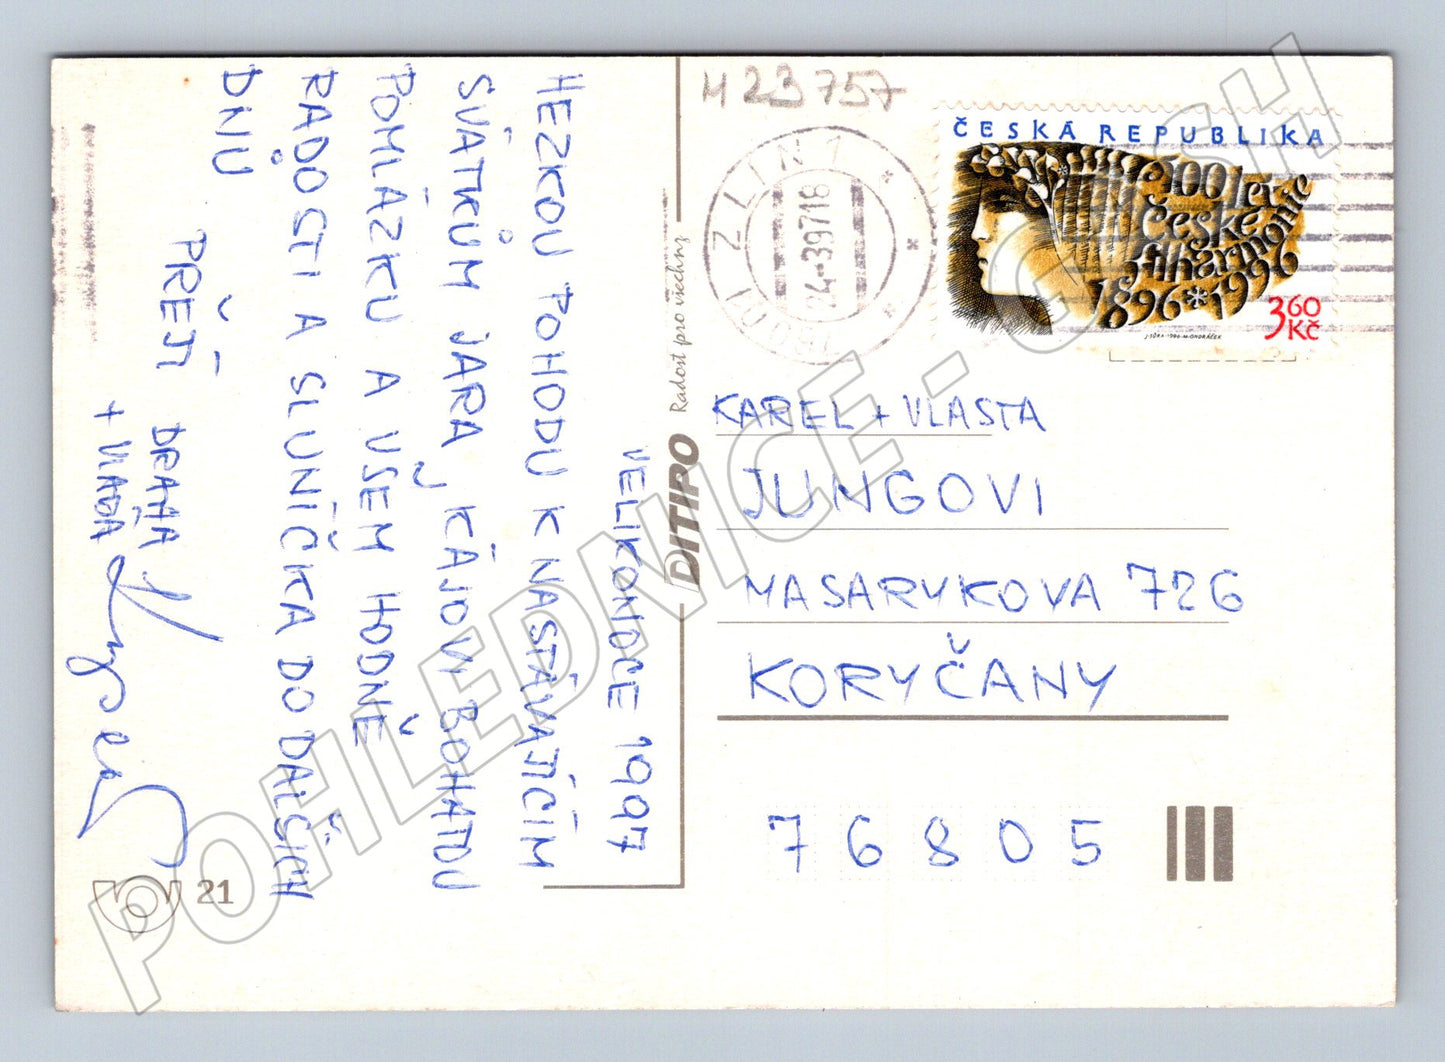 VELIKONOCE 1997
HEZKOU POHODU K NASTÁVAJÍCÍM
SVÁTKŮM JARA, KÁJOVI BOHATOU
POMLÁZKU A VŠEM HODNĚ
RADOSTI A SLUNÍČKA DO DALŠÍCH
DNŮ
PŘEJÍ
DRAHA
+ VLAĎA
21
DITIPO Radost pro všechny
H 23757
ZLÍN 1
24-39718
ČESKÁ REPUBLIKA
100 let
České
filharmonie
1896*1996
3,60
Kč
J. SŮRA-1996-M. ONDRÁČEK
KAREL + VLASTA
JUNGOVI
MASARYKOVA 726
KORYČANY
76805
POHLEDNICE - G
SH